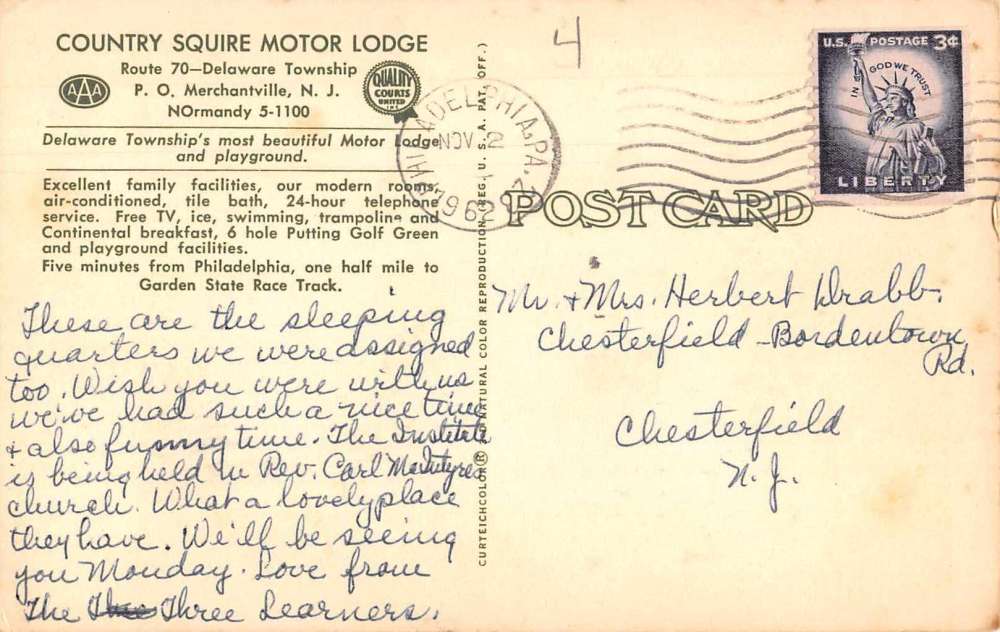 COUNTRY SQUIRE MOTOR LODGE
Route 70—Delaware Township
P. O. Merchantville, N. J.
NOrmandy 5-1100
AAA
QUALITY
COURTS
UNITED
INC
Delaware Township's most beautiful Motor Lodge
and playground.
Excellent family facilities, our modern rooms,
air-conditioned, tile bath, 24-hour telephone
service. Free TV, ice, swimming, trampoline and
Continental breakfast, 6 hole Putting Golf Green
and playground facilities.
Five minutes from Philadelphia, one half mile to
Garden State Race Track.
These are the sleeping
quarters we were assigned
too. Wish you were with us
we've had such a nice time
+ also funny time. The Institute
is being held in Rev. Carl McIntyres
church. What a lovely place
they have. We'll be seeing
you Monday. Love from
The Three Learners.
CURTEICHCOLOR® NATURAL COLOR REPRODUCTION (REG. U. S. A. PAT. OFF.)
4
PHILADELPHIA, PA.
NOV 2
1962
POST CARD
U.S. POSTAGE 3¢
IN GOD WE TRUST
LIBERTY
Mr. + Mrs. Herbert Drabb.
Chesterfield - Bordentown
Rd.
Chesterfield
N. J.